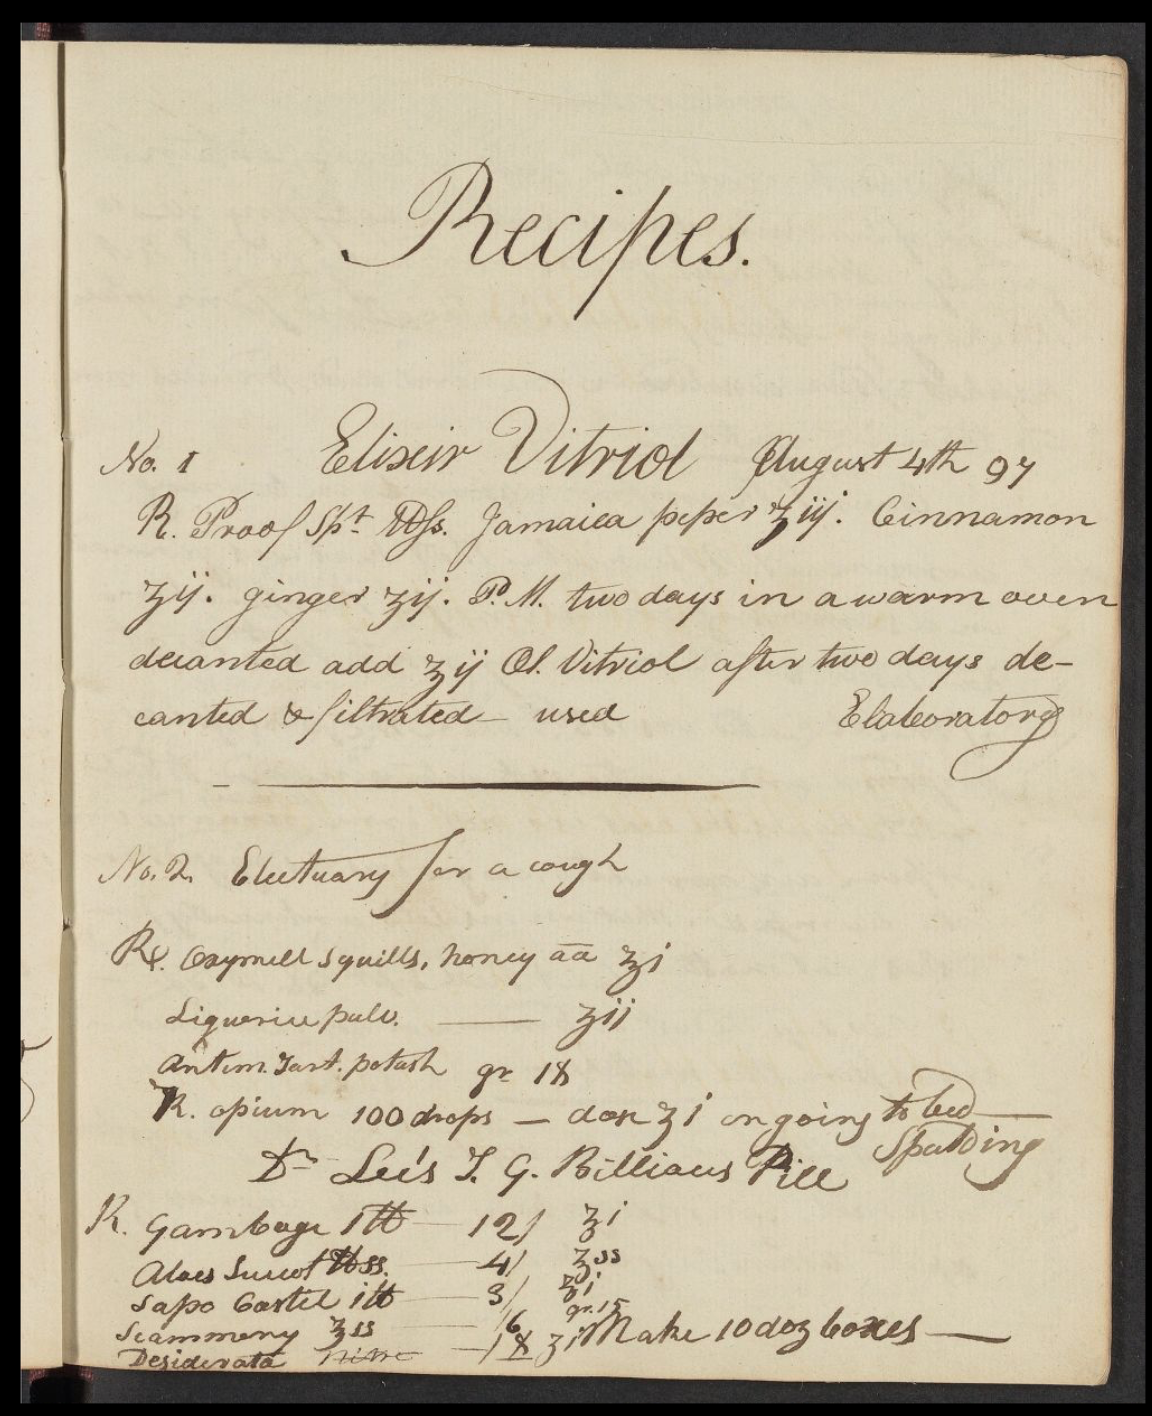 Recipes.
No. 1 Elixir Vitriol August 4th 97
R. Proof Spt. ℔ss. Jamaica peper ʒiij. Cinnamon
ʒij. ginger ʒij. P. M. two days in a warm oven
decanted add ʒij Ol. Vitriol after two days de-
canted & filtrated — used Elaboratory
No. 2. Electuary for a cough
Rx. Oxymell squills, honey āā ʒi
Liquorice pulv. — ʒii
Antim. Tart. potash gr 18
R. opium 100 drops — dose ʒi on going to bed —
Spalding
Dr Lee's T. G. Billiaus Pill
R. Gamboge 1℔ — 12/ ʒi
Aloes Succot ℔ss. — 4/ ʒss
Sapo Castil i℔ — 3/ ʒi
Scammony ʒss — /6 gr. 15 Make 10 doz boxes —
Desiderata — /18 ʒi